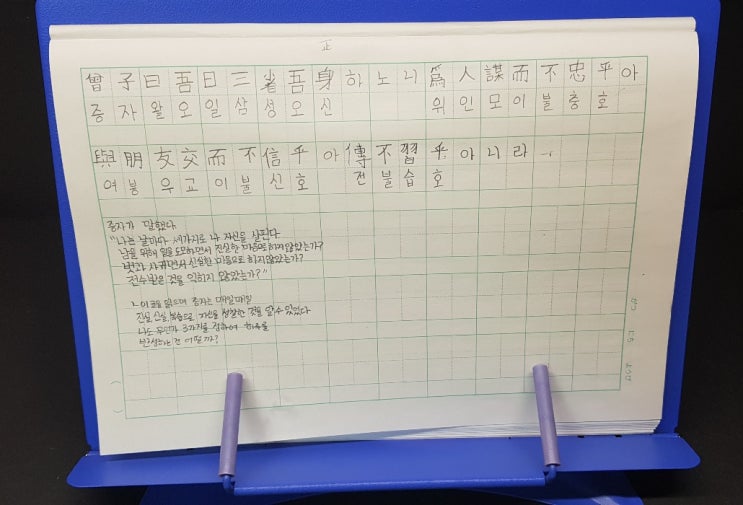 正
曾子曰吾日三省吾身하노니爲人謀而不忠乎아
증자왈오일삼성오신 위인모이불충호
與朋友交而不信乎아傳不習乎아니라
여붕우교이불신호 전불습호
증자가 말했다
"나는 날마다 세가지로 나 자신을 살핀다
남을 위해 일을 도모하면서 진실한 마음으로 하지않았는가?
벗과 사귀면서 신실한 마음으로 하지않았는가?
전수받은 것을 익히지 않았는가?"
글을 읽으며 증자는 매일매일
진실, 신실, 복습으로 자신을 성찰한 것을 알 수 있었다
나도 3가지를 정하여 하루를
어떨까?